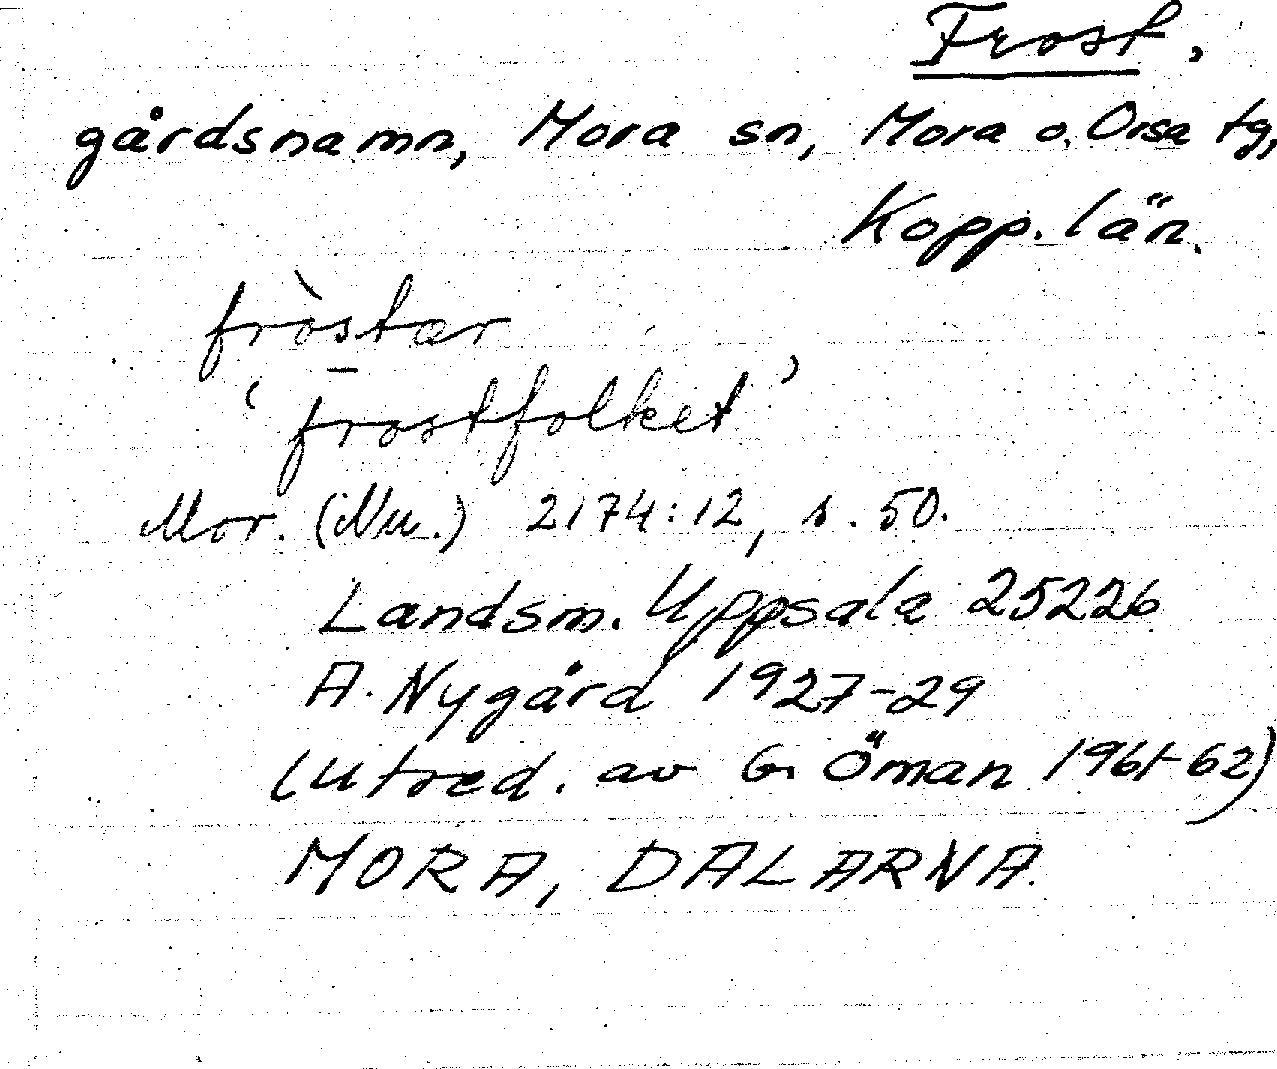 Frost,
gårdsnamn, Mora sn, Mora o. Orsa tg,
Kopp. län.
fròstær
‘frostfolket’
Mor. (Nu.) 2174:12, s. 50.
Landsm. Uppsala 25226
A. Nygård 1927-29
(utred. av G. Öman 1961-62)
MORA, DALARNA.